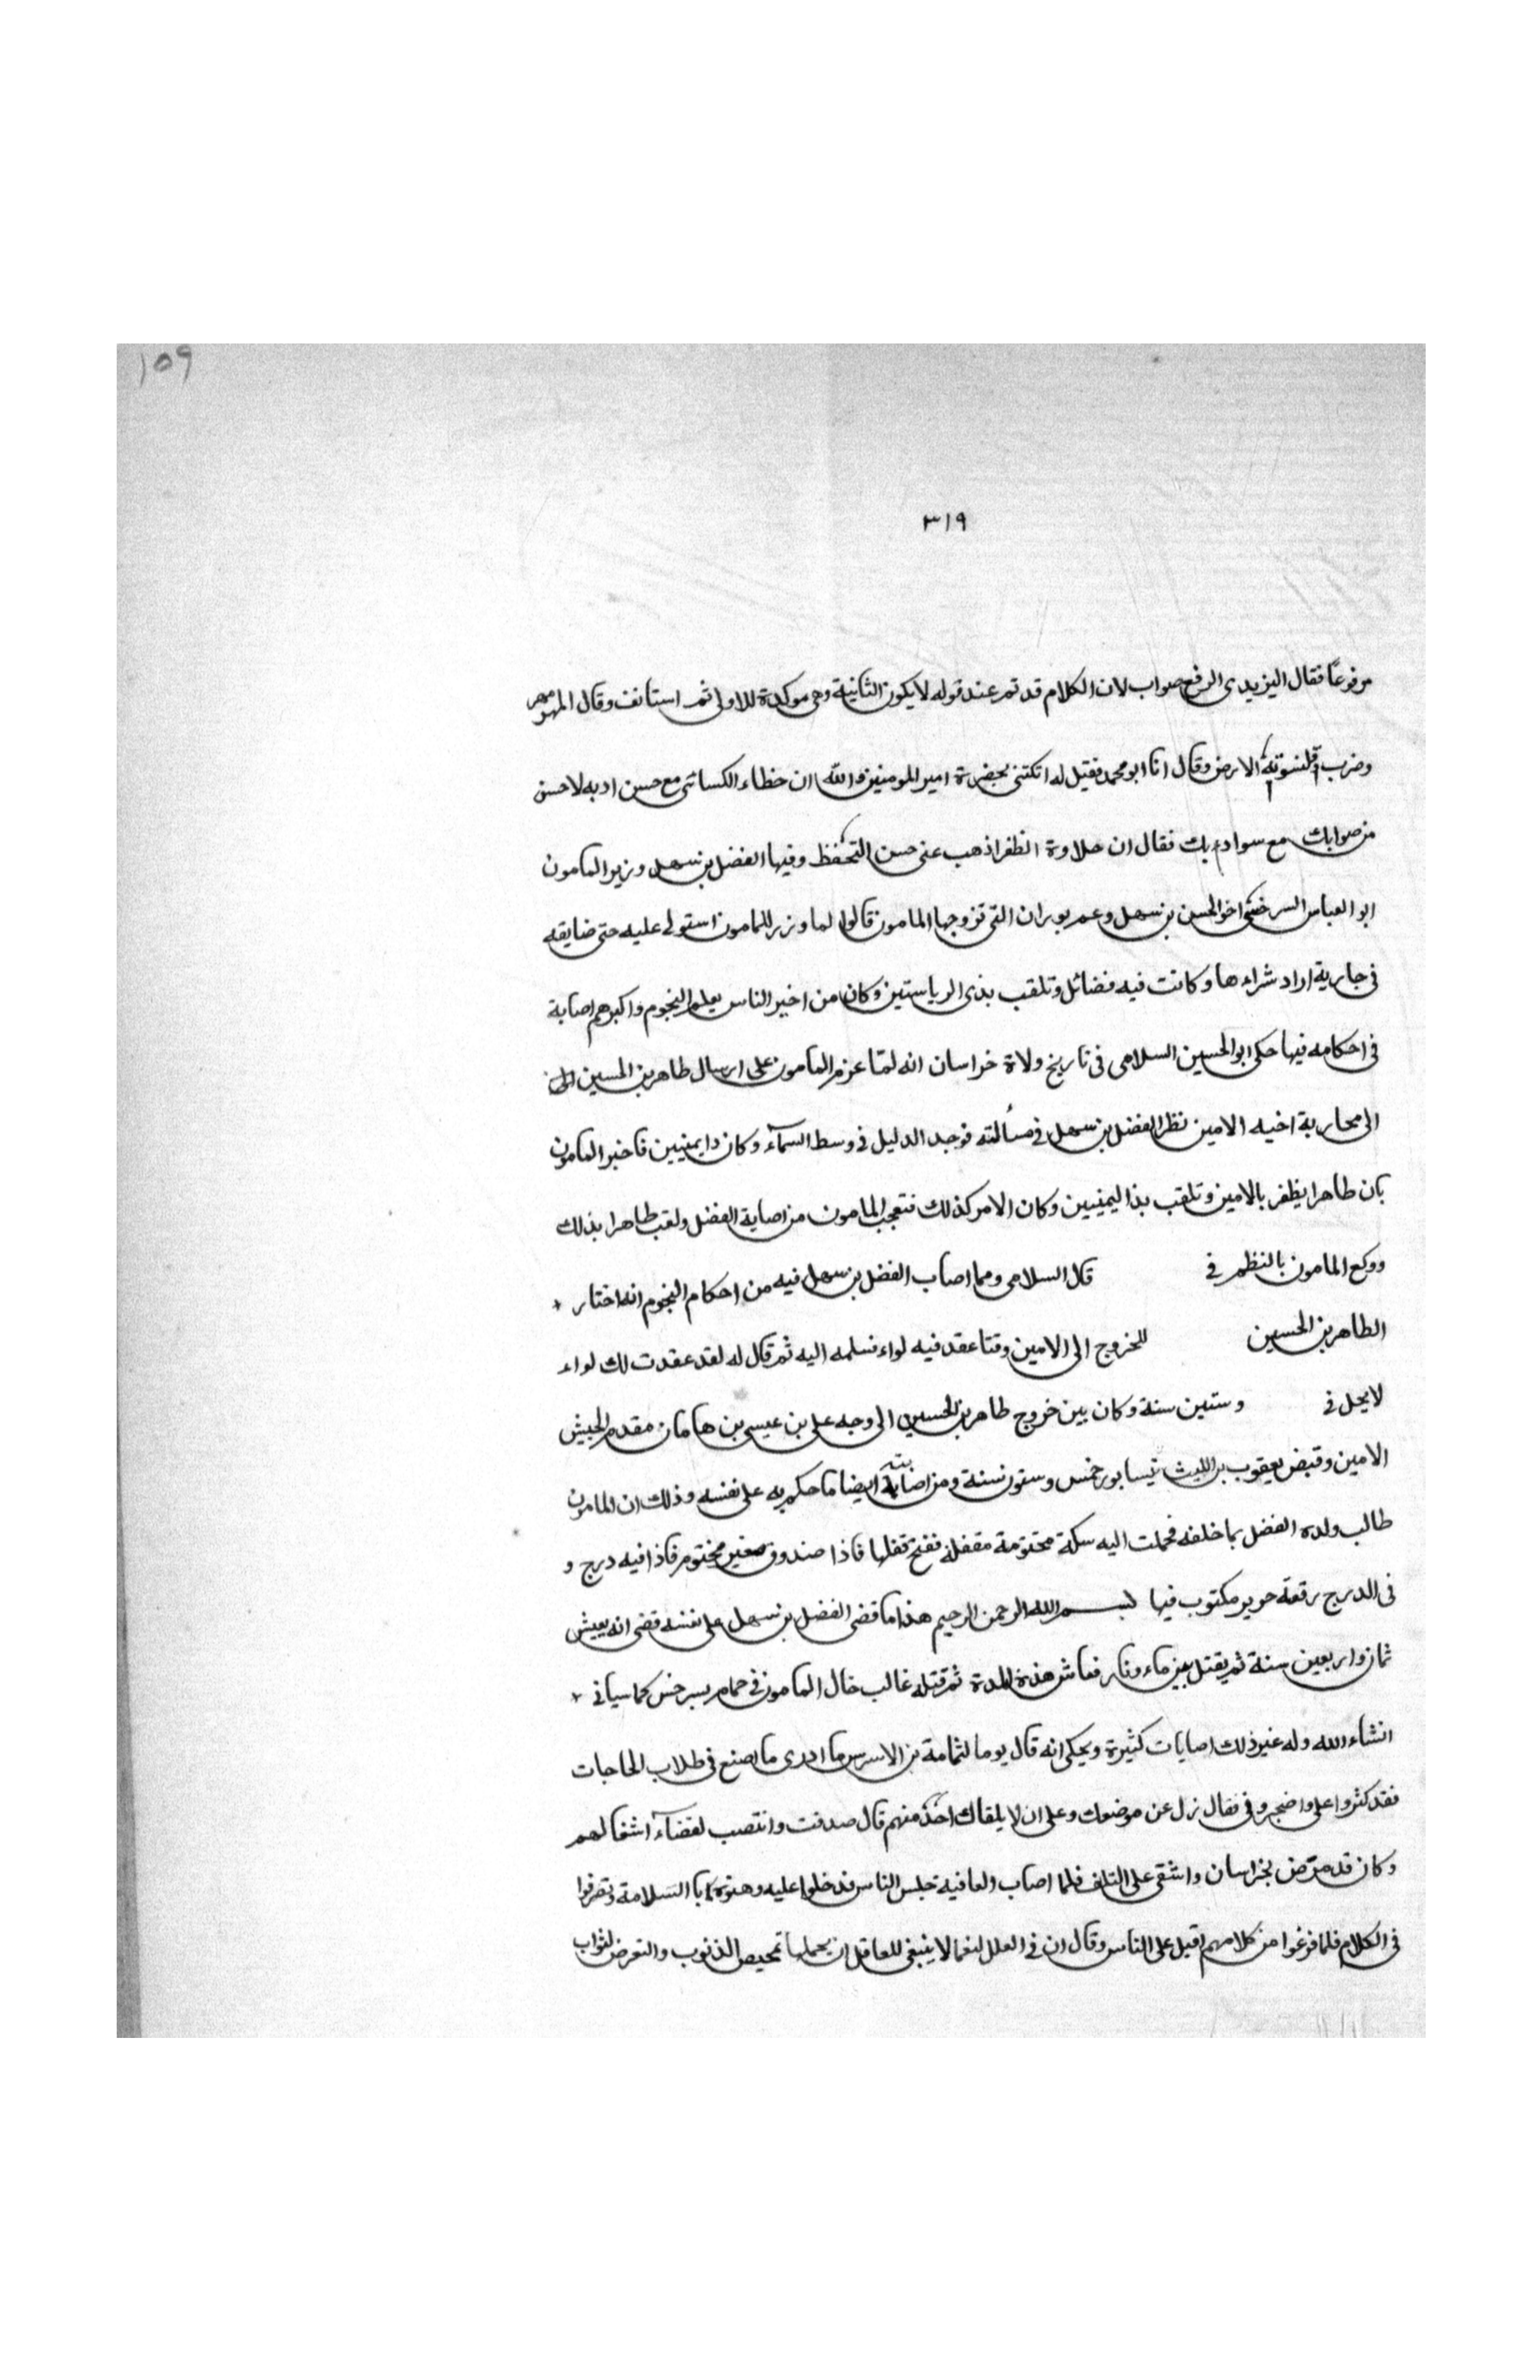 ١٥٩
٣١٩
مرفوعًا فقال اليزيدى الرفع صواب لان الكلام قد تم عند قوله لا يكون الثانية وهى موكدة للاولى ثم استانف وقال المهر مهر
وضرب قلنسوته الارض وقال انا ابو محمد فقيل له اتكتنى بحضرة امير المومنين والله ان خطاء الكسائى مع حسن ادبه لاحسن
من صوابك مع سوادبك فقال ان حلاوة الظفر اذهب عنى حسن التحفظ وفيها الفضل بن سهل وزير المامون
ابو العباس السرخسى اخو الحسن بن سهل وعم بوران التى تزوجها المامون قالوا لما وزر للمامون استولى عليه حتى ضايقه
فى جارية اراد شراءها وكانت فيه فضائل وتلقب بذى الرياستين وكان من اخبر الناس بعلم النجوم واكبرهم اصابة
فى احكامه فيها حكى ابو الحسين السلامى فى تاريخ ولاة خراسان انه لمّا عزم المامون على ارسال طاهر بن الحسين
الى محاربة اخيه الامين نظر الفضل بن سهل فى مسألته فوجد الدليل فى وسط السمآء وكان ذا يمينين فاخبر المامون
بان طاهرا يظفر بالامين وتلقب بذا اليمينين وكان الامر كذلك فتعجب المامون من اصابة الفضل ولقب طاهرا بذلك
وولع المامون بالنظر فى قال السلامى ومما اصاب الفضل بن سهل فيه من احكام النجوم انه اختار
الطاهر بن الحسين للخروج الى الامين وقتا عقد فيه لواء فسلمه اليه ثم قال له لقد عقدت لك لواء
لا يحل فى وستين سنة وكان بين خروج طاهر بن الحسين الى وجه على بن عيسى بن هامان مقدم الجيش
الامين وقبض يعقوب بن الليث نيسابور خمس وستون سنة ومن اصاباته ايضا ما حكم به على نفسه وذلك ان المامون
طالب ولده الفضل بما خلفه فحملت اليه سكة مختومة مقفلة ففتح قفلها فاذا صندوق صغير مختوم فاذا فيه درج و
فى الدرج رقعة حرير مكتوب فيها بسم الله الرحمن الرحيم هذا ما قضى الفضل بن سهل على نفسه قضى انه يعيش
ثمان واربعين سنة ثم يقتل بين ماء ونار فعاش هذه المدة ثم قتله غالب خال المامون فى حمام بسرخس كما سياتى
انشاء الله وله غير ذلك اصابات كثيرة ويحكى انه قال يوما لثمامة بن الاسرس ما ادرى ما اصنع فى طلاب الحاجات
فقد كثروا على واضجرونى فقال زل عن موضعك وعلى ان لا يلقاك احد منهم قال صدقت وانتصب لقضآء اشغالهم
وكان قد مرض بخراسان واشفى على التلف فلما اصاب العافيه جلس الناس فدخلوا عليه وهنوه بالسلامة وتصرفوا
فى الكلام فلما فرغوا من كلامهم اقبل على الناس وقال ان فى العلل لنعما لا ينبغى للعاقل ان يجهلها تمحيص الذنوب والتعرض لثواب